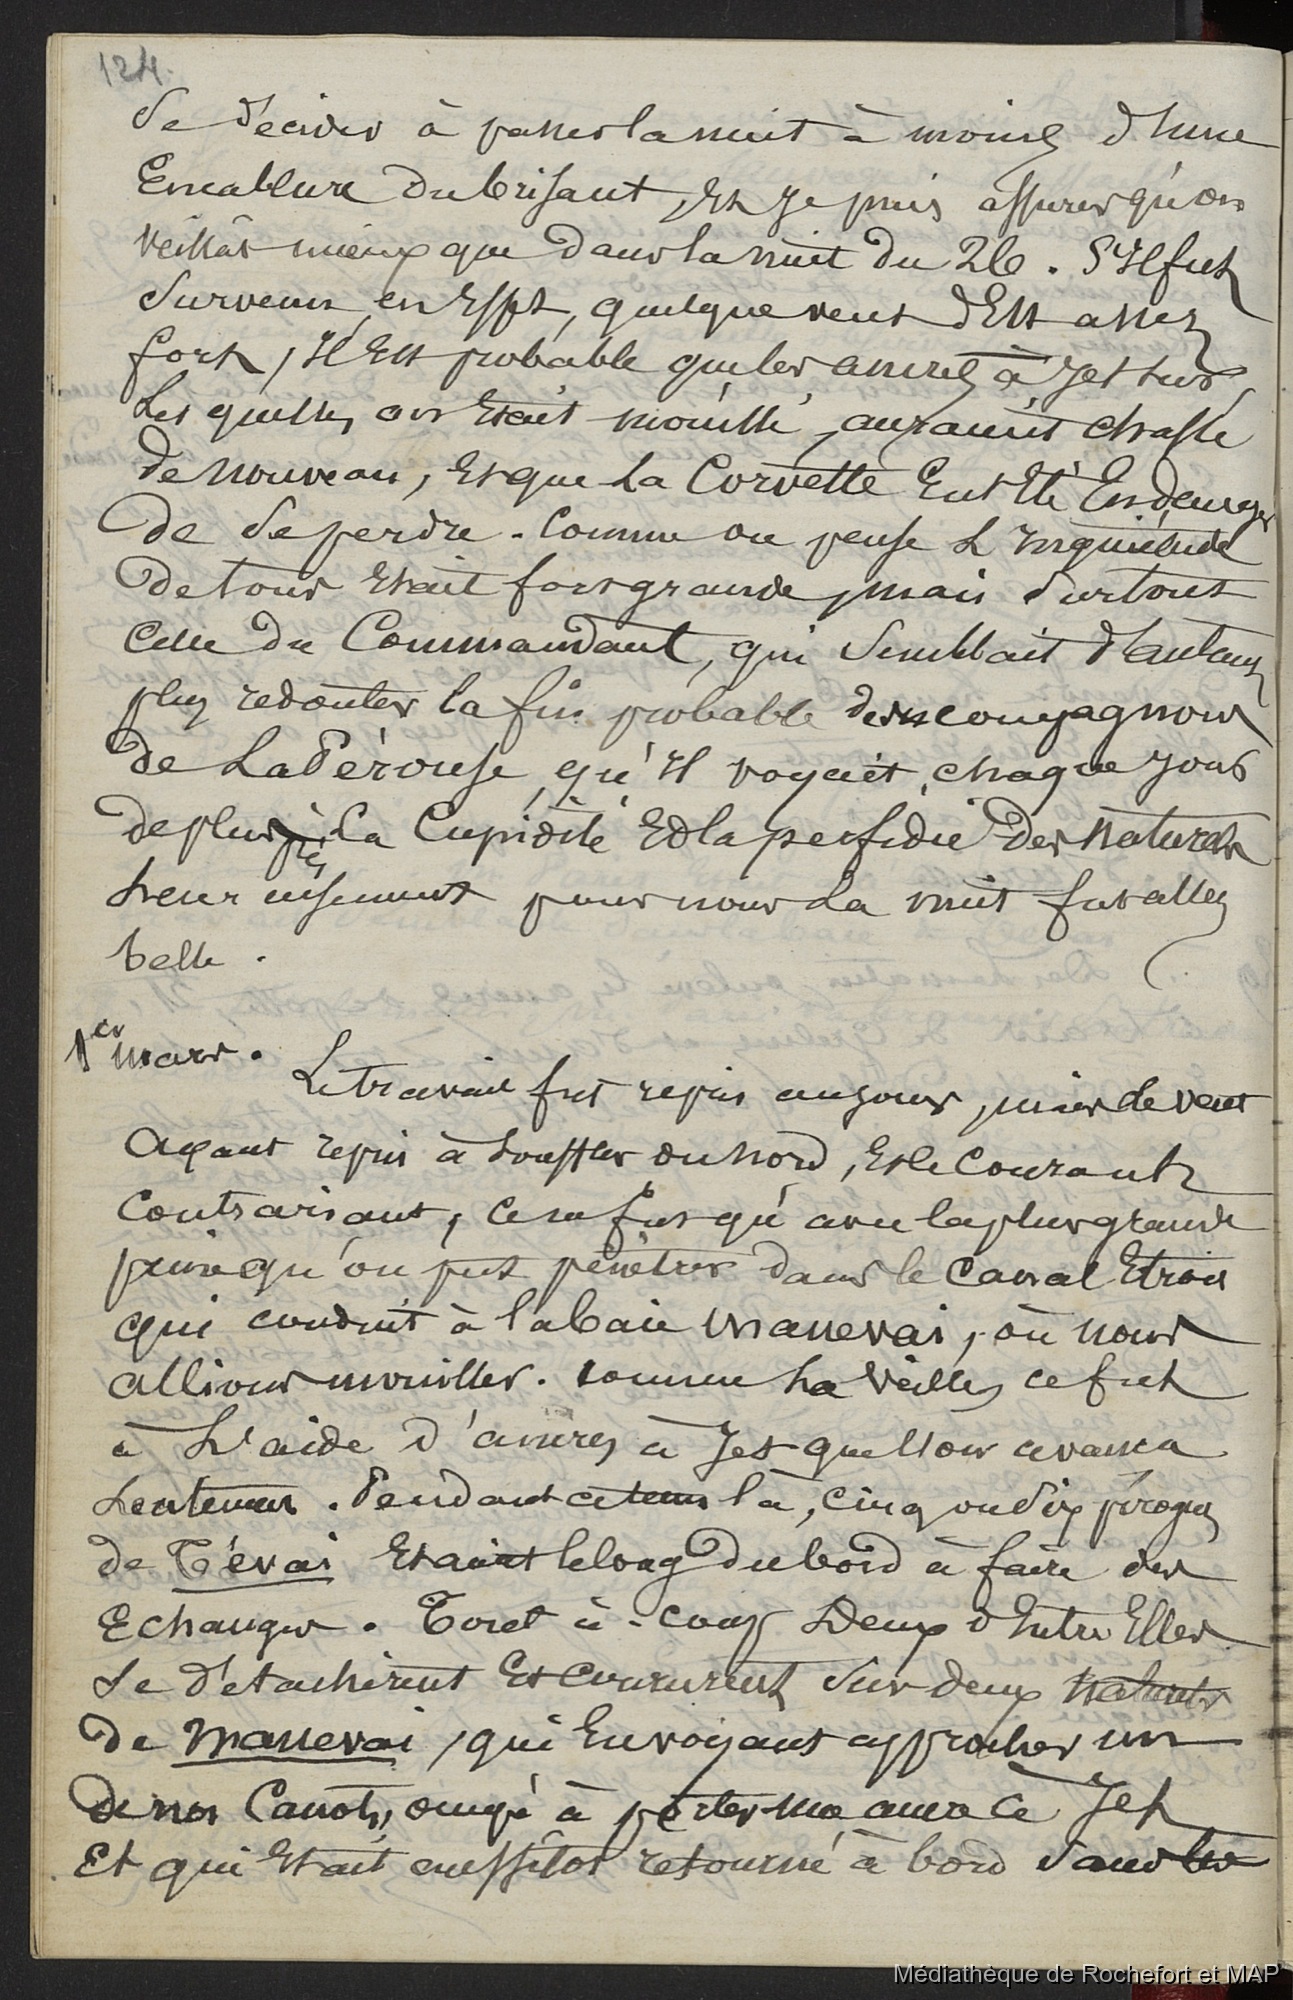 124.
Se décider à passer la nuit à moins d'une
Encablure du brisant, Et Je puis assurer qu'on
veillât mieux que dans la nuit du 26. S'Il fut
Survenu, en Effet, quelque vent d'Est assez
fort, Il Est probable que les ancres à Jet sur
Lesquelles on Etait mouillé, auraient chassé
de nouveau, Et que La Corvette Eut Eté En danger
de Se perdre. Comme on pense L'Inquiétude
de tous Etait fort grande, mais Surtout
Celle du Commandant, qui Semblait d'autant
plus redouter la fin probable des compagnons
de LaPérouse, qu'Il voyait, chaque Jour
de plus près, La Cupidité Et la perfidie des naturels
heureusement pour nous La nuit fut assez
belle.
1er mars.
Le travail fut repris au jour, mais le vent
ayant repris à souffler du nord, Et le Courant
Contrariant, ce ne fut qu'avec la plus grande
peine qu'on put pénétrer dans le Canal Etroit
qui conduit à la baie Manevai, où nous
allions mouiller. Comme La Veille, ce fut
à L'aide d'ancres à Jet que l'on avança
Lentement. Pendant ce tems là, cinq ou Six pirogues
de Tévai Etaient le long du bord à faire des
Echanges. Tout à-coup Deux d'Entre Elles
Se détachèrent Et coururent Sur deux naturels
de Manevai, qui En voyant approcher un
de nos Canots, occupé à porter une ancre à Jet
Et qui Etait aussitôt retourné à bord Sans les
Médiathèque de Rochefort et MAP